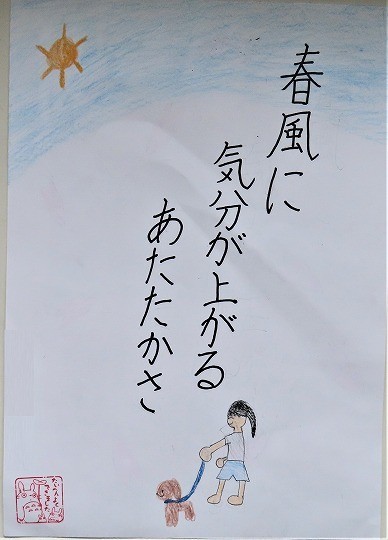 春風に
気分が上がる
あたたかさ